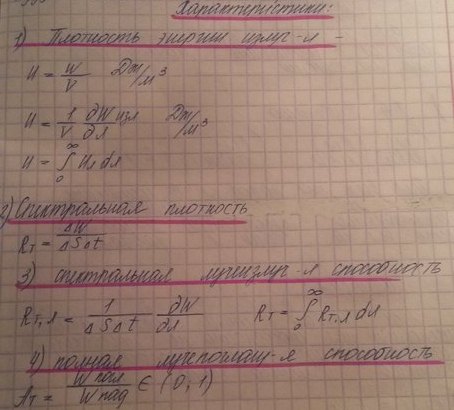 Характеристики:
1) Плотность энергии излуч-я -
u = W/V Дж/м³
u = 1/V ∂Wизл/∂λ Дж/м³
u = ∫₀^∞ uλ dλ
2) Спектральная плотность
Rт = ΔW/ΔSΔt
3) спектральная лучеизлуч-я способность
Rт,λ = 1/ΔSΔt ∂W/∂λ Rт = ∫₀^∞ Rт,λ dλ
4) полная лучепоглащ-я способность
Aт = Wпогл/Wпад ∈ (0,1)